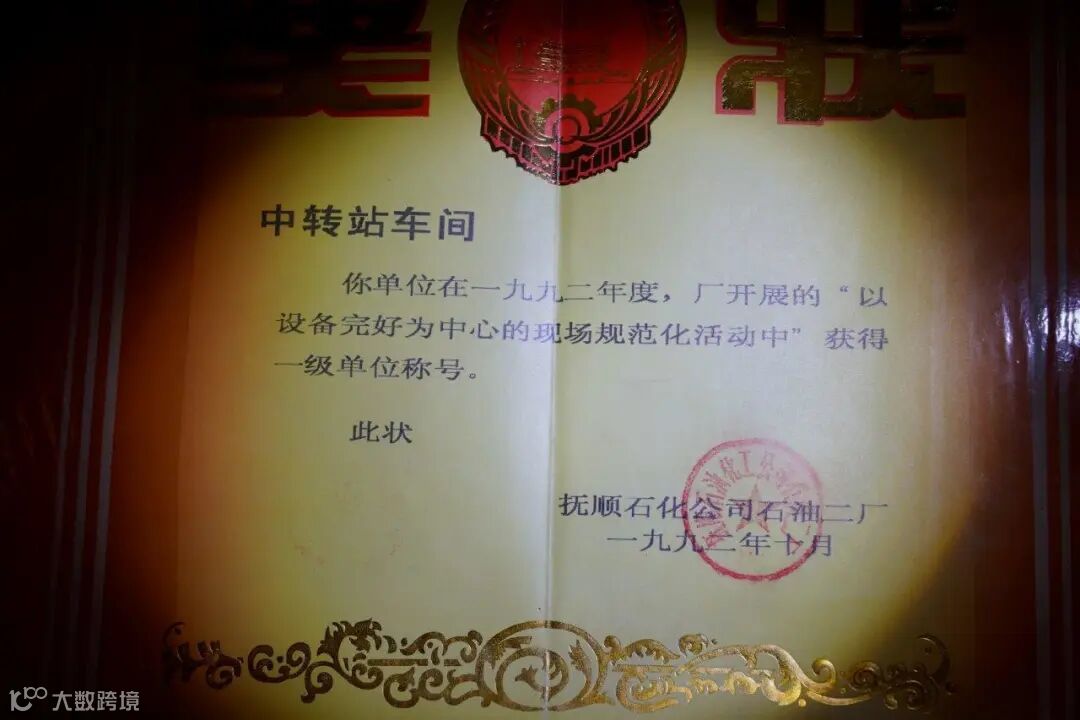 奖状
中转站车间
你单位在一九九二年度，厂开展的“以
设备完好为中心的现场规范化活动中”获得
一级单位称号。
此状
抚顺石化公司石油二厂
一九九二年十月
大数跨境